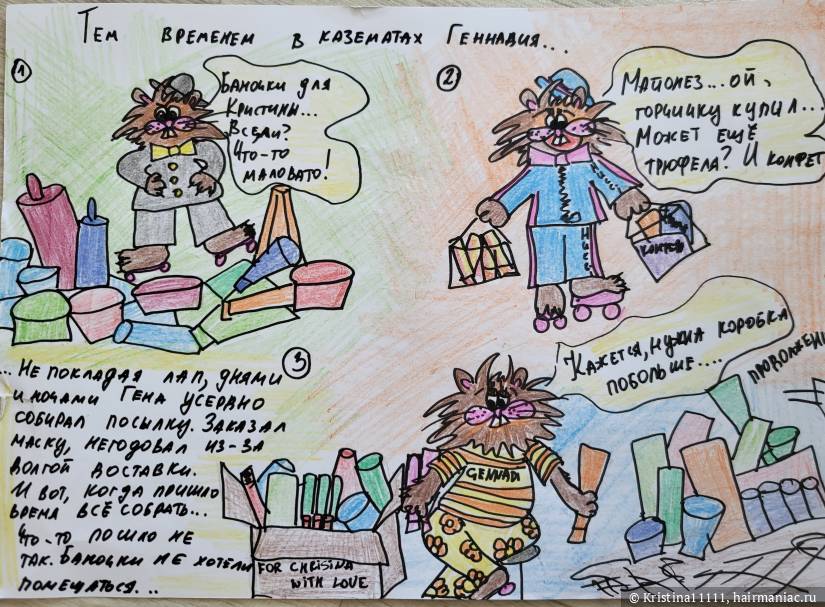 Тем временем в казематах Геннадия...
1
Баночки для
Кристины...
Всели?
Что-то
маловато!
2
Майонез...ой,
горчичку купил...
Может ещё
трюфела? И конфет
GENNADI
3
Кажется, нужна коробка
побольше....
... Не покладая лап, днями
и ночами Гена усердно
собирал посылку. Заказал
маску, негодовал из-за
долгой доставки.
И вот, когда пришло
время всё собрать...
Что-то пошло не
так. Баночки не хотели
помещаться...
FOR CHRISINA
WITH LOVE
© Kristina11111, hairmaniac.ru